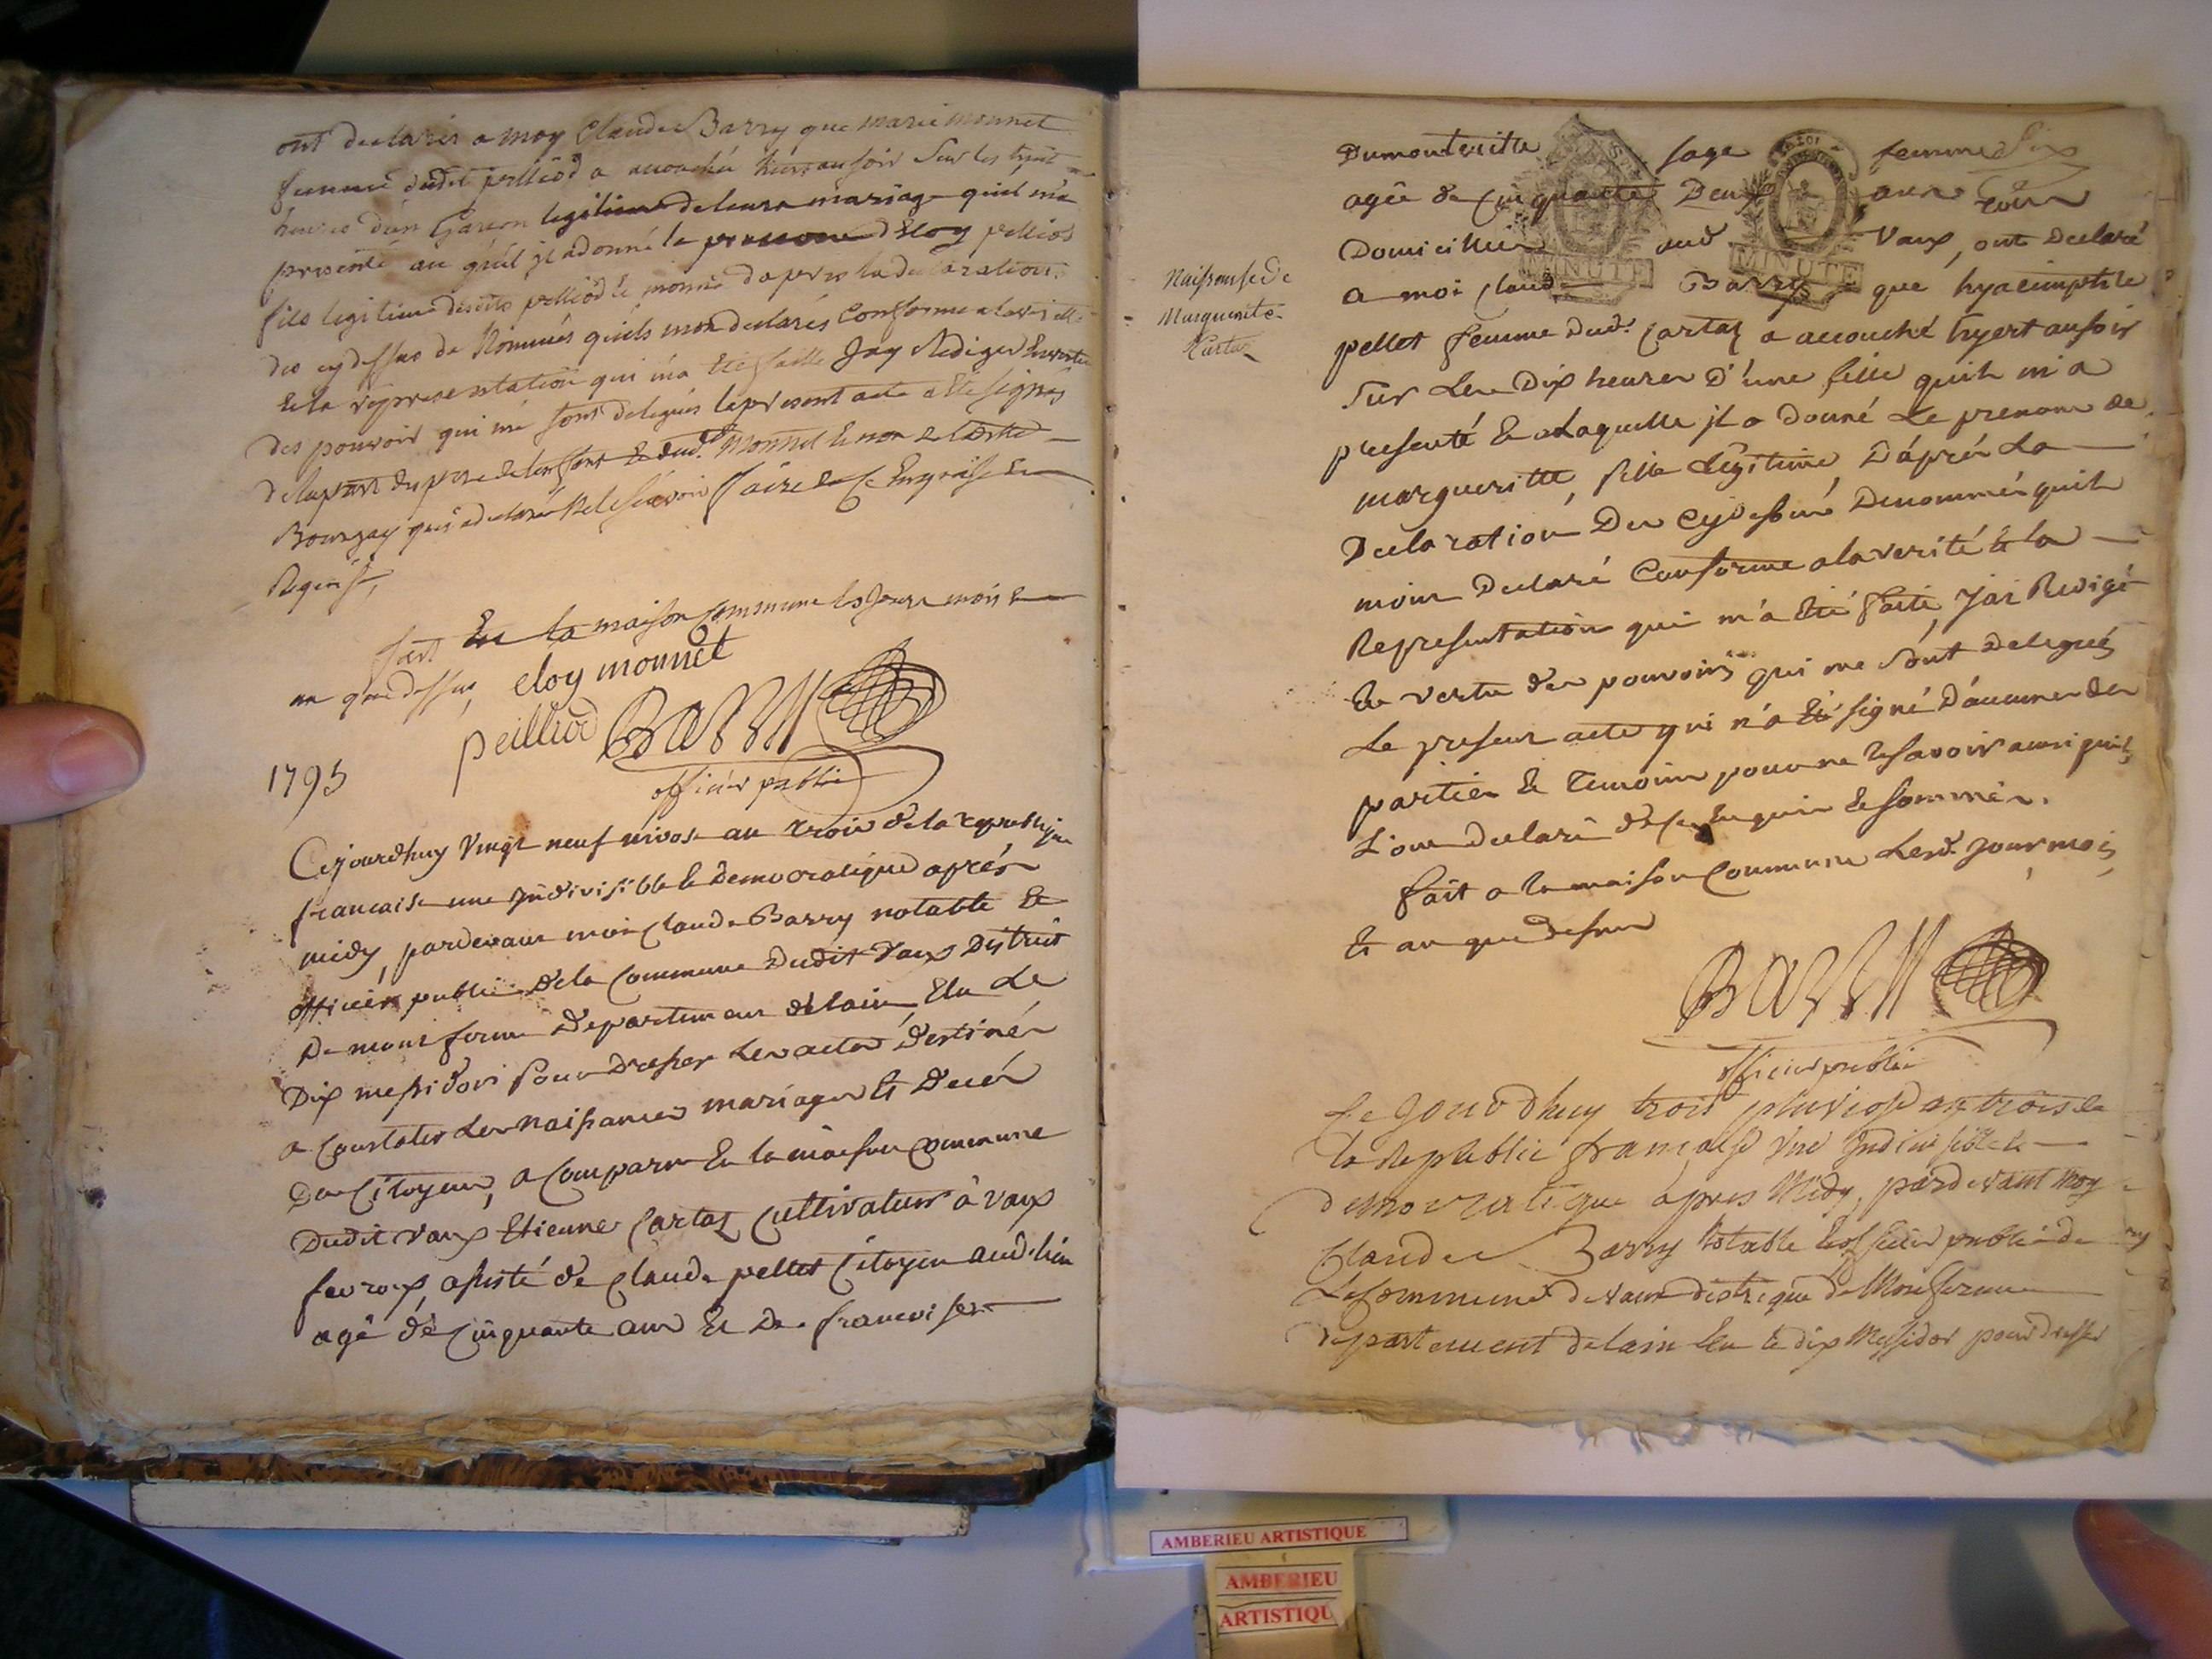 ont declarés a moy Claude Barry que marie monnet
femme dudit pelliod a accouchée hier au soir sur les huit
heures d'un Garçon legitime de leurs mariage quil m'a
presenté au quél jl a donné le prenom d'Eloy pelliod
fils legitime desdits pelliod et monnet dapres la declaration
des cy dessus de Nommés quils mon declarés Conforme a la verité
et la representation qui m'a été faitte Jay Rediger En vertu
des pouvoir qui mé sont delegués le present acte a été signés
de la part du pere de lenfant et dud. Monnet et non de
Bourgay qui a declarée Ne le sçavoir faire de ce Enquise Et
Requise,
fait En la maison Commune les Jours mois et
an que dessus, eloy monnet
peilliod Barry
officier public
1795
Cejourdhuy Vingt neuf nivose an trois de la republique
francaise une Jndivisible et Democratique aprés
midy, pardevant moi Claude Barry notable Et
officier public de la Commune Dudit Vaux District
De mont ferme Departement de lain, Elu Le
Dix messidor pour Dresser Les actes destinés
a Constater Les Naissances mariages et Decés
Des Citoyens, a Comparu En la maison commune
Dudit Vaux Etienne Cartaz Cultivateur à Vaux
fevroux, assisté de Claude pellet Citoyen aud. lieu
agé dé Cinquante ans Et De francoise
Dumonteille sage femme
agée de Cinquante Deux ans tous
Domiciliés aud Vaux, ont Declaré
a moi Claude Barry que hyacimpthe
pellet femme Dud. Cartaz a accouché hyert au soir
Sur Les Dix heures D'une fille quils m'a
presenté Et a Laquelle jl a Donné Le prenom de
margueritte, fille Légitime, D'áprés La
Declaration Des Cydessus Denommés quils
mont Declaré Conforme a la verité et la
Representation qui m'a été faite, J'ai Redigé
En vertu des pouvoirs qui me sont Delegués
Le present acte qui n'a Eté signé D'aucunes des
parties Et temoins pour ne Le savoir ainsi quils
L'ont declaré de ce Enquis Et sommés.
fait a la maison Commune Lesd. Jour mois
et an que dessus
Barry
officier public
Naissance de
Marguerite
Cartaz
MINUTE
MINUTE
Ce Jourdhuy trois pluviose an trois de
la Republic francaise Une Indivisible et
democratique apres Midy, pardevant moy
Claude Barry Notable et officier public de
La Commune de vaux distrique de Montferme
departement de lain Elu le dix Messidor pour dresser
AMBERIEU ARTISTIQUE
AMBERIEU
ARTISTIQU